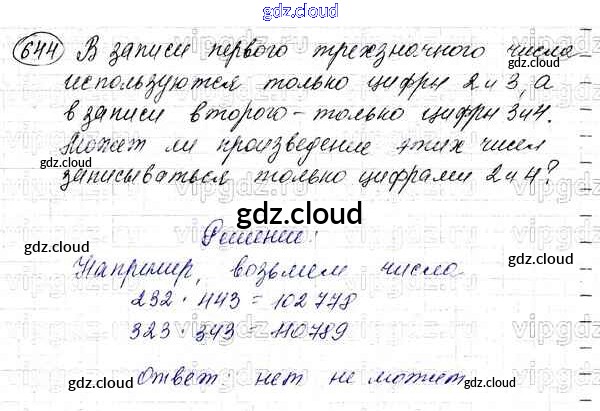 gdz.cloud
644 В записи первого трехзначного числа
используются только цифры 2 и 3, а
в записи второго - только цифры 3 и 4.
Может ли произведение этих чисел
записываться только цифрами 2 и 4?
gdz.cloud
Решение:
Например, возьмем числа
232 · 443 = 102778
323 · 343 = 110789
Ответ: нет не может
gdz.cloud
gdz.cloud
gdz.cloud
gdz.cloud
gdz.cloud
gdz.cloud